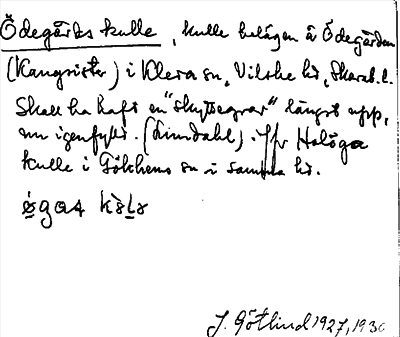 Ödegårds kulle, kulle belägen å Ödegården
(Kangsister) i Kleva sn, Vilske hd, Skarab. l.
Skall ha haft en "skyttegrav" längst upp,
nu igenfylld. (Lindahl). Jfr Holöga
kulle i Gökhems sn i samma hd.
J. Götlind 1927, 1930